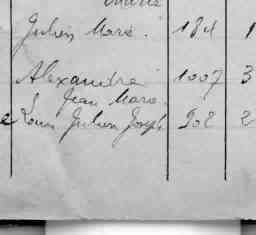 Marie
Julien Marie. 184 1
Alexandre 1007 3
Jean Marie
e Louis Julien Joseph 902 2